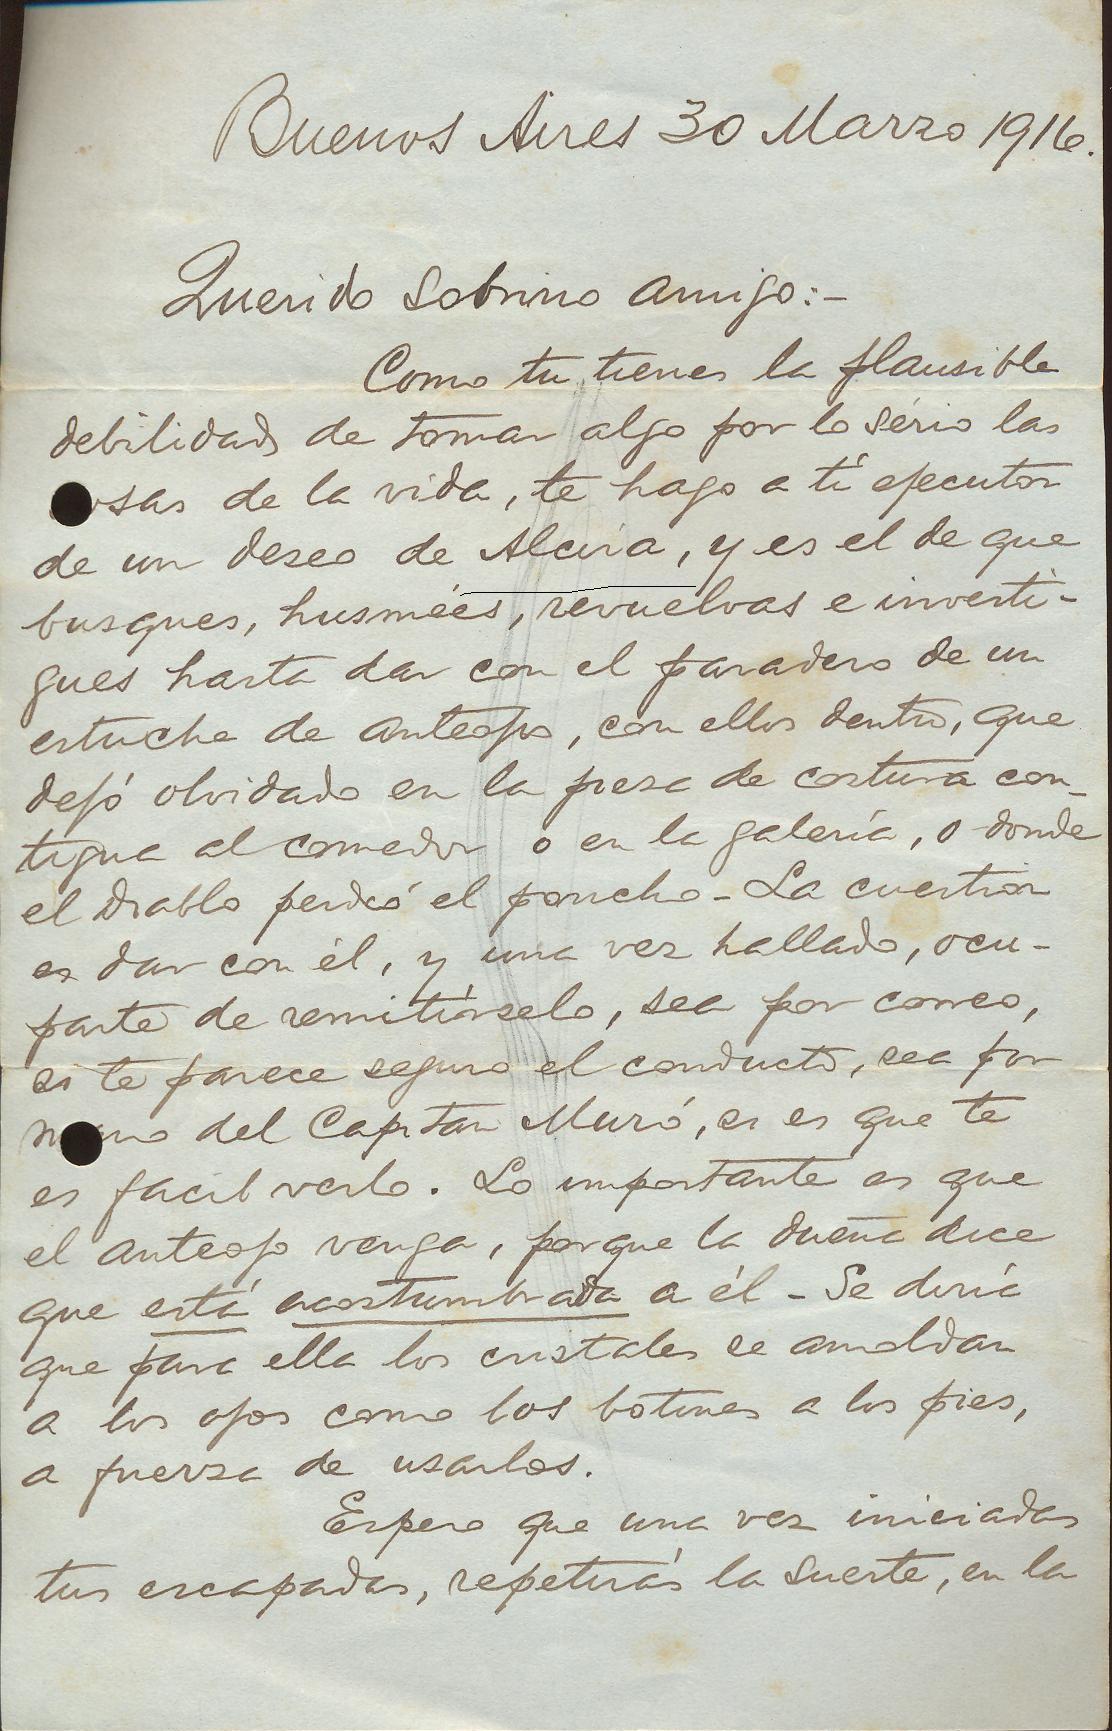 Buenos Aires 30 Marzo 1916.
Querido Sobrino amigo:-
Como tu tienes la plausible
debilidad de tomar algo por lo sério las
osas de la vida, te hago a tí ejecutor
de un deseo de Alcira, y es el de que
busques, husmées, revuelvas e investi-
gues hasta dar con el paradero de un
estuche de anteojos, con ellos dentro, que
dejó olvidado en la pieza de costura con-
tigua al comedor o en la galería, o donde
el diablo perdió el poncho - La cuestion
es dar con él, y una vez hallado, ocu-
parte de remitírselo, sea por correo,
si te parece seguro el conducto, sea por
mano del Capitan Muró, si es que te
es facil verlo. Lo importante es que
el anteojo venga, porque la dueña dice
que está acostumbrada a él - Se diría
que para ella los cristales se amoldan
a los ojos como los botines a los pies,
a fuerza de usarlos.
Espero que una vez iniciadas
tus escapadas, repetirás la suerte, en la